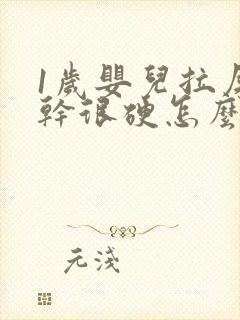 1歲嬰兒拉
幹很硬怎麼
元淺